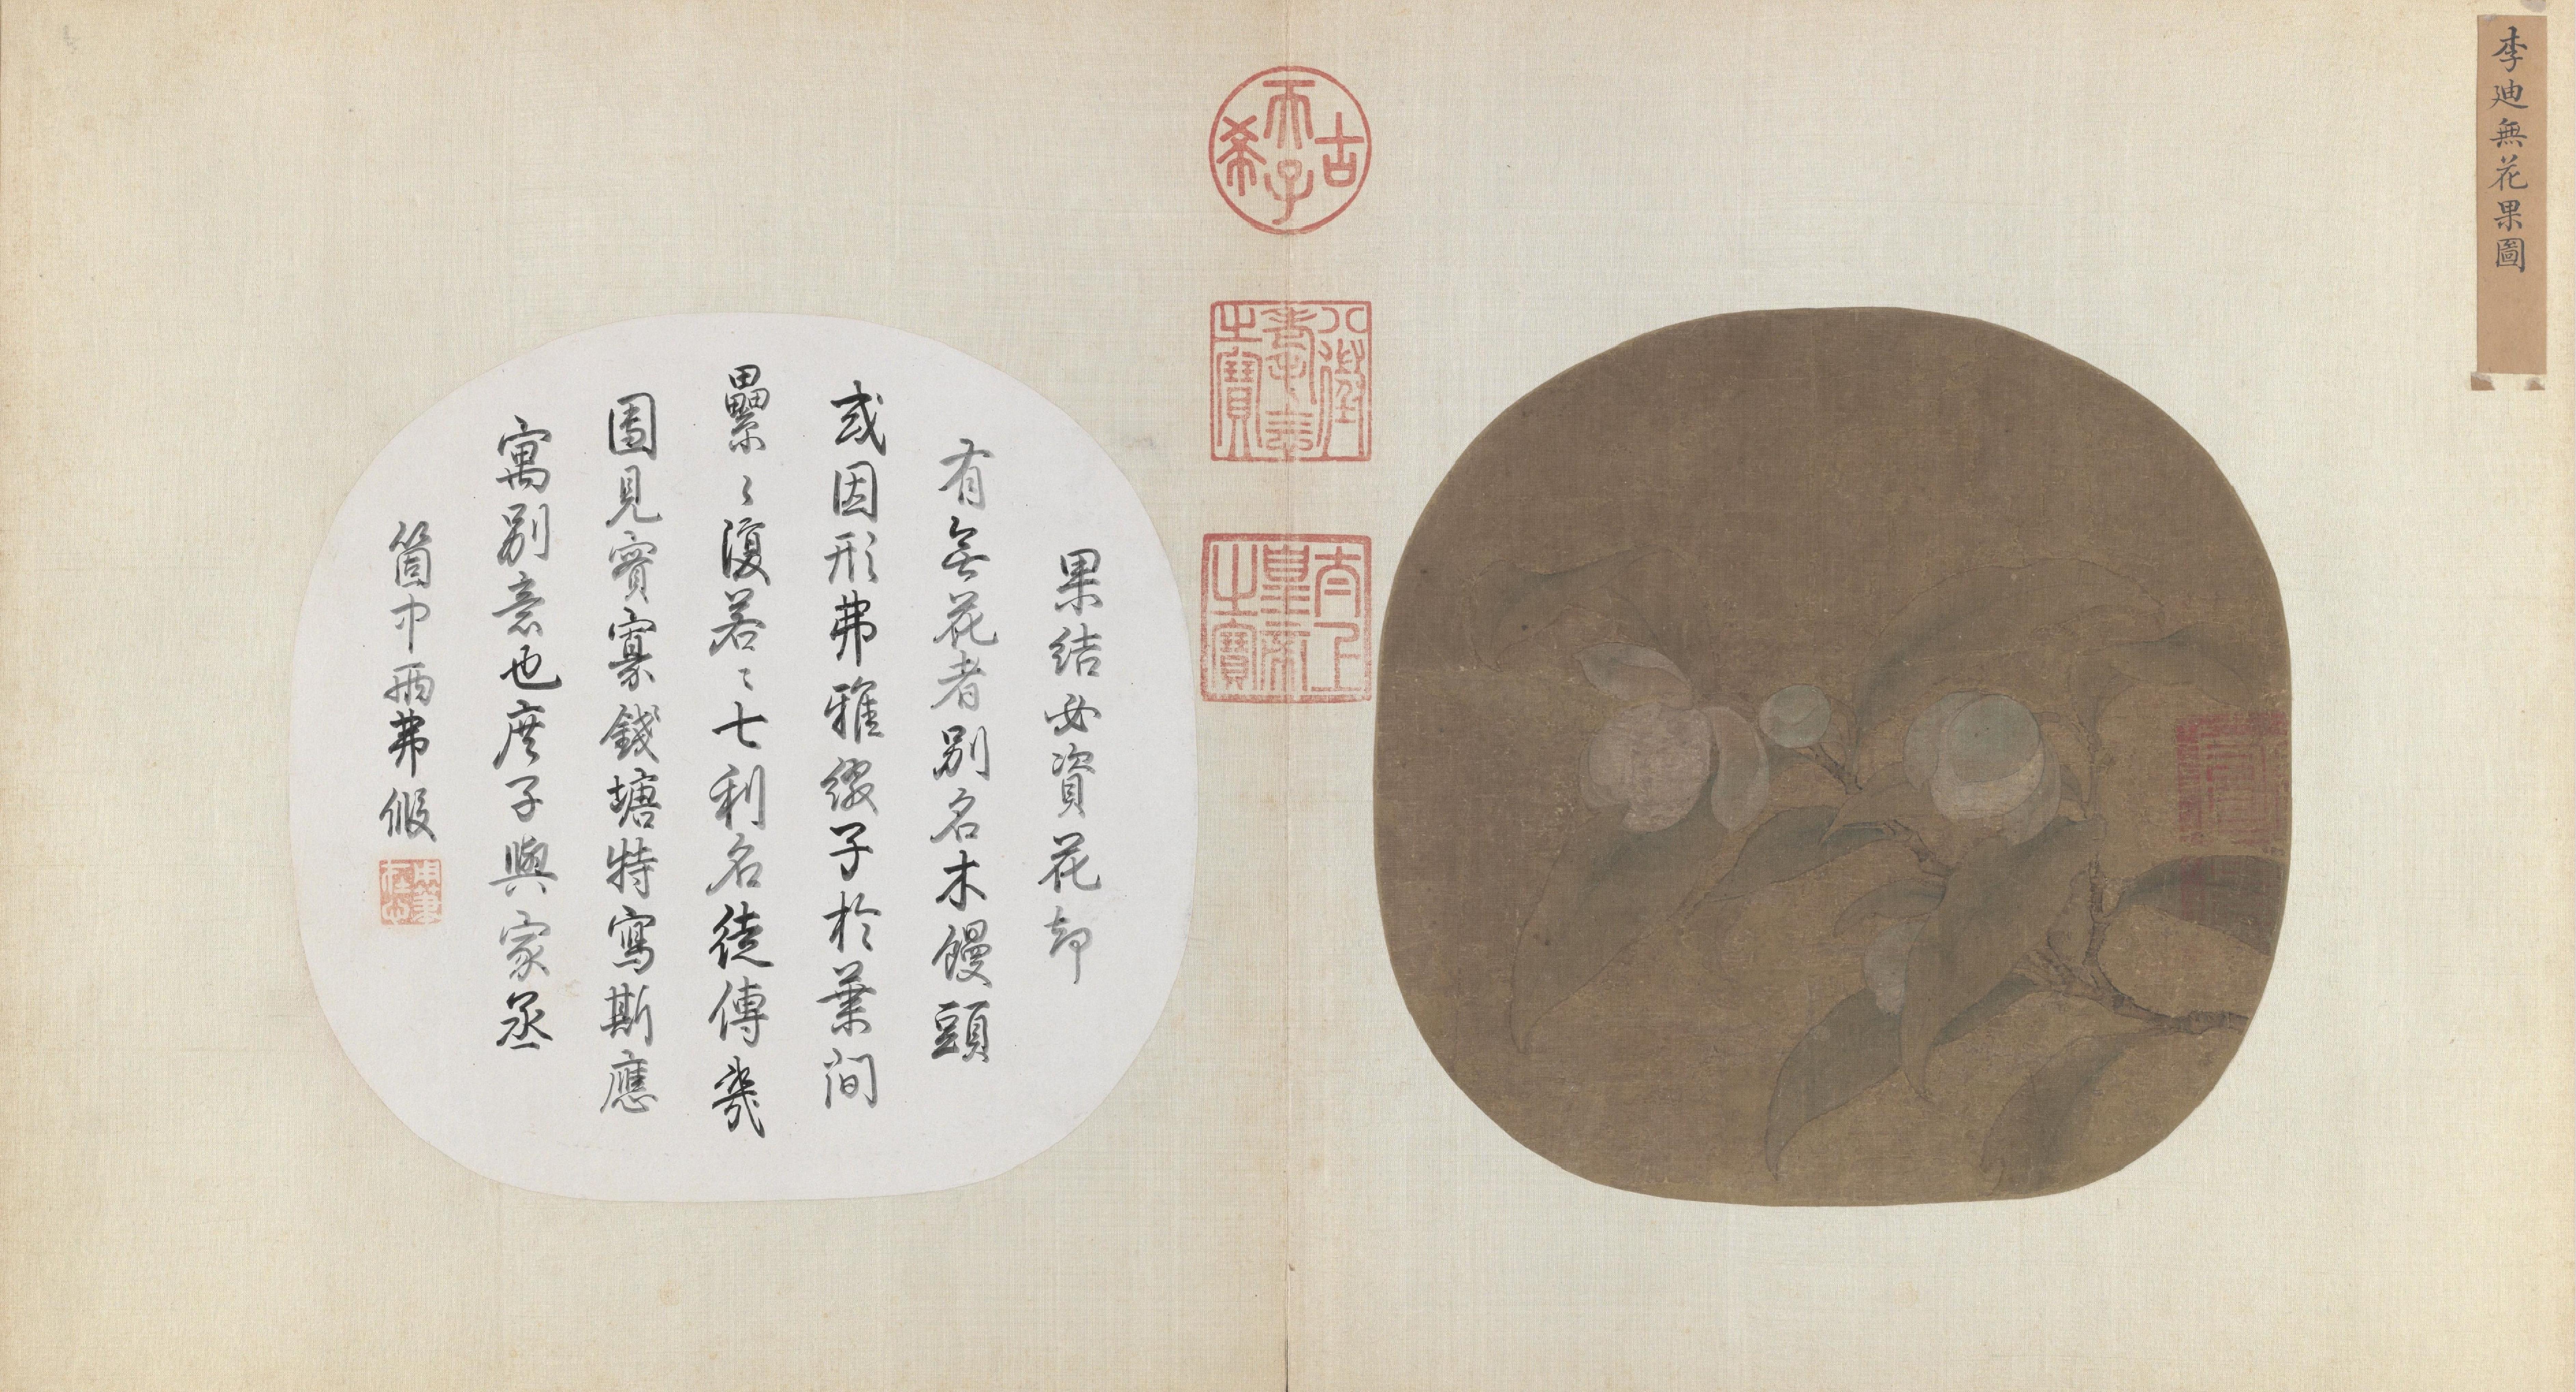 李迪無花果圖
古希天子
八徵耄念之寶
太上皇帝之寶
果結必資花却
有無花者別名木饅頭
或因形弗雅綴子於葉間
纍〻復若〻七利名徒傳幾
圖見實寡錢塘特寫斯應
寓別意也庶子與家丞
箇中兩弗假